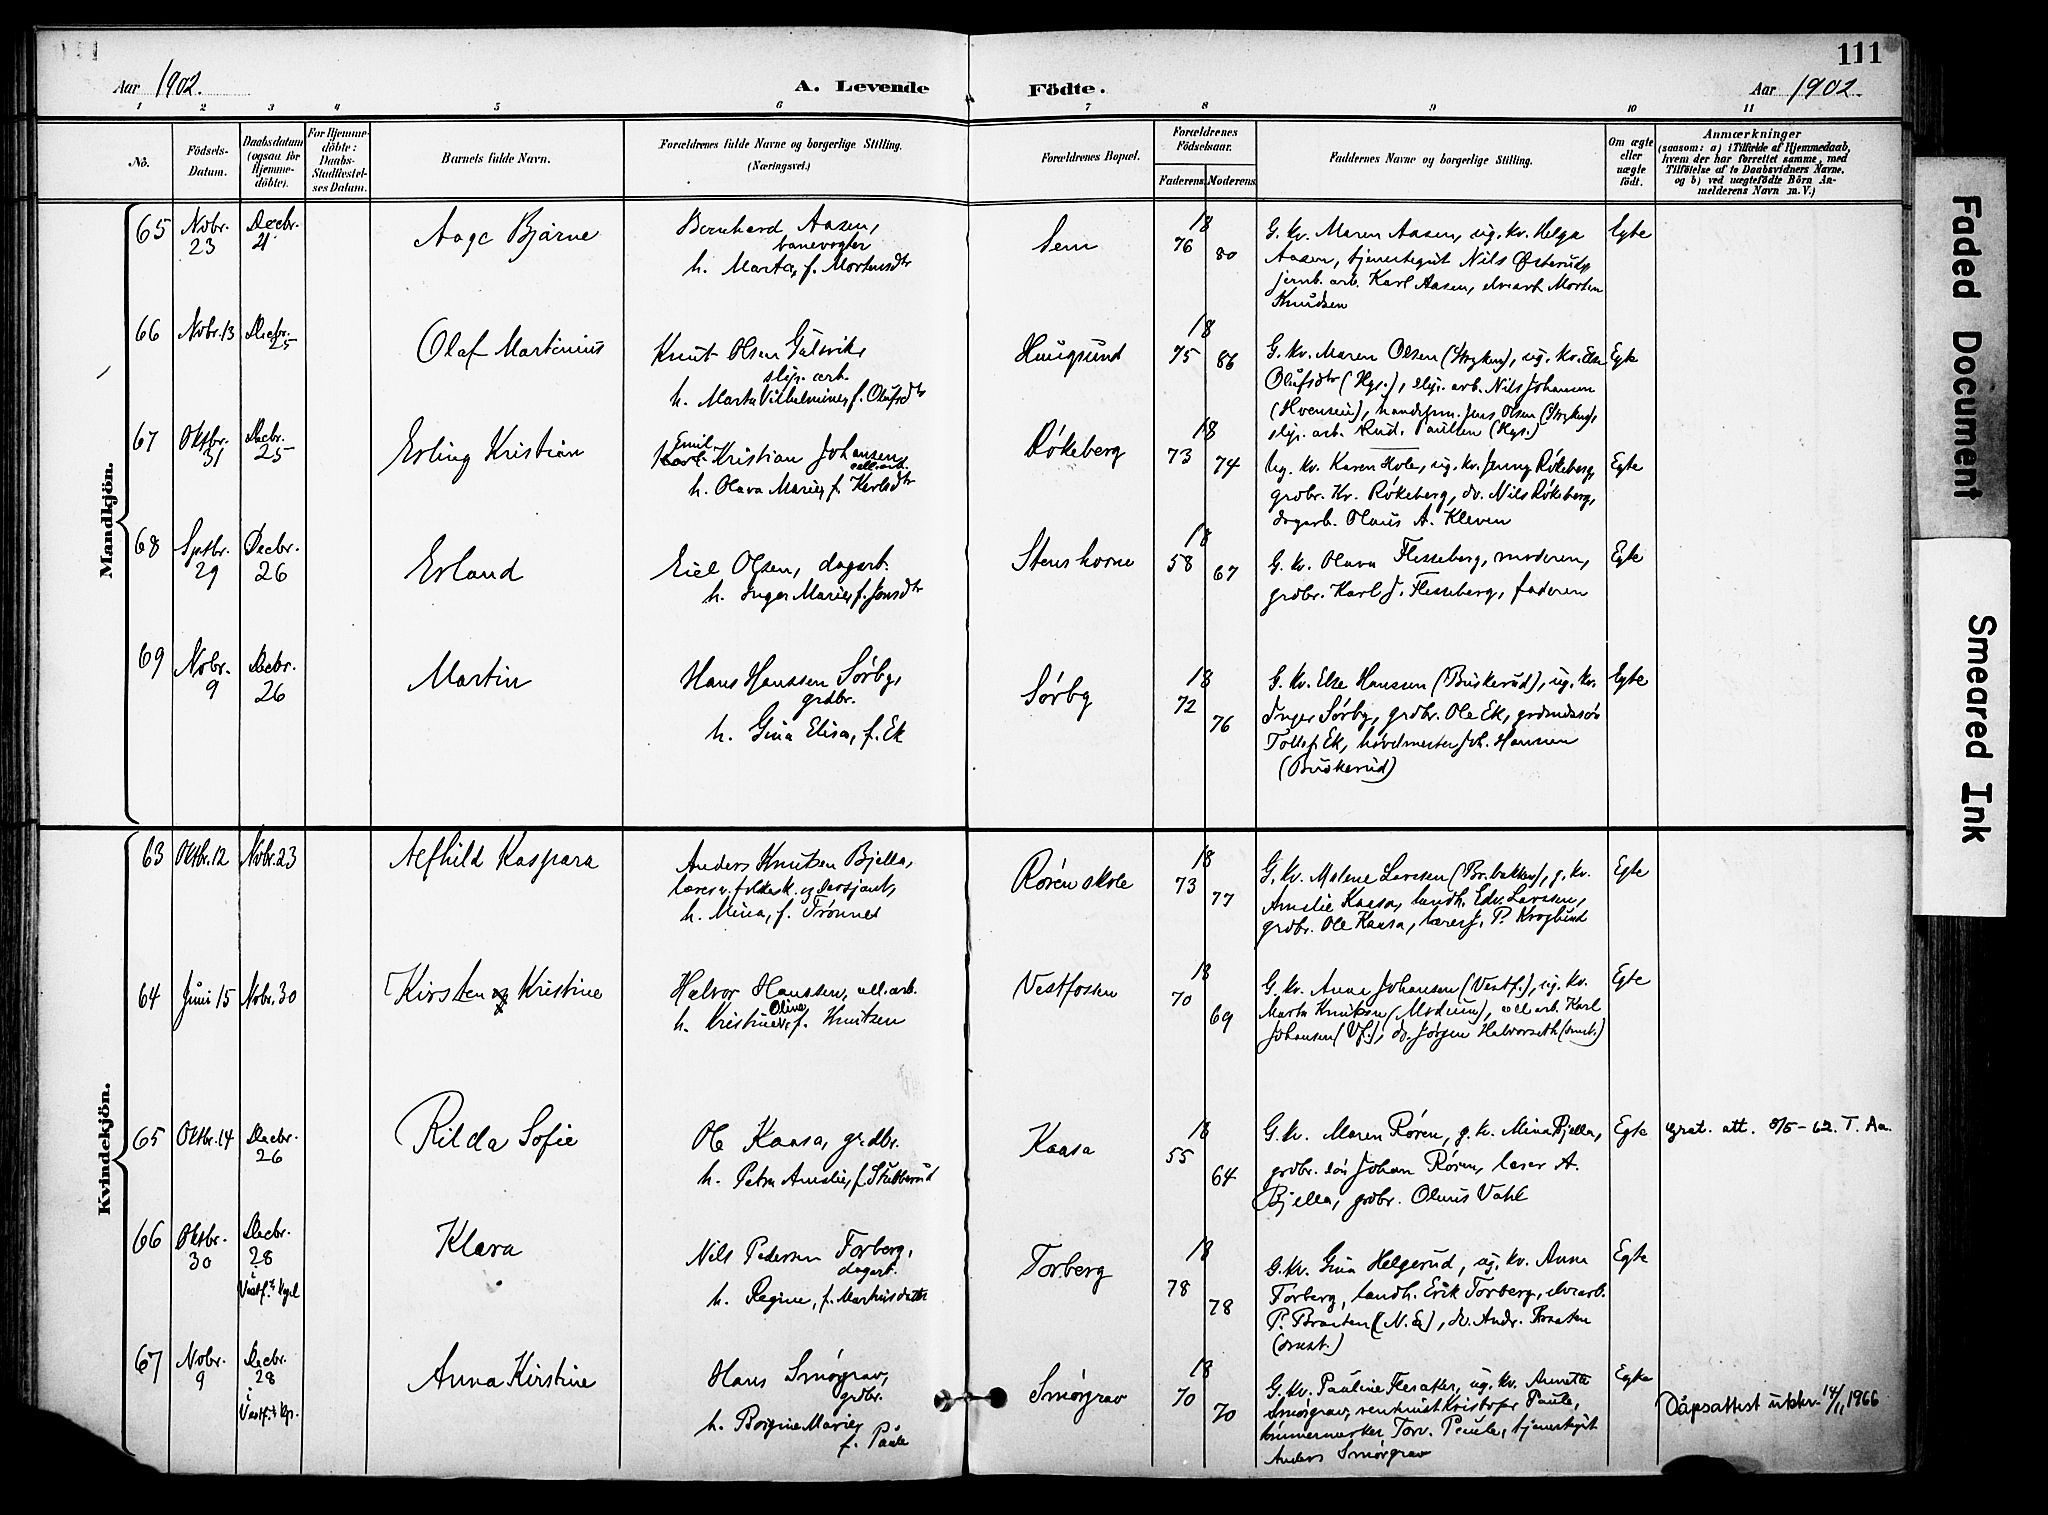 111
Aar 1902.
A. Levende Födte.
Aar 1902.
1 2 3 4 5 6 7 8 9 10 11
No.
Födsels-Datum.
Daabsdatum (ogsaa for Hjemmedöbte).
For Hjemmedöbte: Daabs-Stadfæstelses Datum.
Barnets fulde Navn.
Forældrenes fulde Navne og borgerlige Stilling.
(Næringsvei.)
Forældrenes Bopæl.
Forældrenes Födselsaar.
Faderens. Moderens.
Faddernes Navne og borgerlige Stilling.
Om ægte eller uægte födt.
Anmærkninger
(saasom: a) i Tilfælde af Hjemmedaab,
hvem der har forrettet samme, med
Tilföielse af to Daabsvidners Navne,
og b) ved uægtefödte Börn An-
melderens Navn m. V.)
Mandkjön.
65 Novbr. 23 Decbr. 21
Aage Bjarne
Bernhard Aasen,
banevogter
h. Marta, f. Mortensdtr
Sem
18 76 80
G. kv. Maren Aasen, ug. kv. Helga
Aasen, tjenestegut Nils Østerud,
jernb. arb. Karl Aasen, elvearb. Morten
Knudsen
Egte
66 Novbr. 13 Decbr. 25
Olaf Martinius
Knut Olsen Gulsvik,
slip. arb.
h. Marta Vilhelmine, f. Olufsdtr
Haugsund
18 75 86
G. kv. Maren Olsen (Stryken), ug. kv. Else
Olufsdtr (Hgs.), slip. arb. Nils Johansen
(Hornsrin), handelsm. Jens Olsen (Stryken),
slip. arb. Rud. Paulsen (Hgs.)
Egte
67 Oktbr. 31 Decbr. 25
Erling Kristian
Emil
Karl Kristian Johansen
cell. arb.
h. Olava Marie, f. Karlsdtr
Røkeberg
18 73 74
Ug. kv. Karen Hole, ug. kv. Jenny Røkeberg,
grdbr. Kr. Røkeberg, do. Nils Røkeberg,
dagarb. Olaus A. Kleven
Egte
68 Septbr. 29 Decbr. 26
Erland
Eiel Olsen, dagarb.
h. Inger Marie, f. Jensdtr
Stenshorne
18 58 67
G. kv. Olava Flesseberg, moderen,
grdbr. Karl J. Flesseberg, faderen
Egte
69 Novbr. 9 Decbr. 26
Martin
Hans Hanssen Sørby,
grdbr.
h. Gina Elisa, f. Ek
Sørby
18 72 76
G. kv. Else Hanssen (Buskerud), ug. kv.
Inger Sørby, grdbr. Ole Ek, grdmandssøn
Tollef Ek, hovdmester Joh. Hansen
(Buskerud)
Egte
Kvindekjön.
63 Oktbr. 12 Novbr. 23
Alfhild Kaspara
Anders Knutsen Bjella,
lærer v. folkesk. og sersjant,
h. Mina, f. Trønnes
Røren skole
18 73 77
G. kv. Malene Larssen (Br.bakken), g. kv.
Amalie Kaasa, landh. Edv. Larssen,
grdbr. Ole Kaasa, lærer J. P. Kroglund
Egte
64 Juni 15 Novbr. 30
Kirsten Kristine
Halvor Hanssen, cell. arb.
Oline
h. Kristine, f. Knutsen
Vestfossen
18 70 69
G. kv. Anna Johansen (Vestf.), ug. kv.
Marta Knutsen (Modum), cell. arb. Karl
Johansen (Vf.), do. Jørgen Halvorseth (smst.)
Egte
65 Oktbr. 14 Decbr. 26
Rilda Sofie
Ole Kaasa, grdbr.
h. Petra Amalie, f. Stubberud
Kaasa
18 55 64
G. kv. Maren Røren, g. k. Mina Bjella,
grdbr. søn Johan Røren, lærer A.
Bjella, grdbr. Olaus Vahl
Egte
Grat. att. 8/5-62. T. Aa.
66 Oktbr. 30 Decbr. 28 i Vestf. kpel
Klara
Nils Pedersen Torberg,
dagarb.
h. Regine, f. Martinsdatter
Torberg
18 78 78
G. kv. Gina Helgerud, ug. kv. Anna
Torberg, landh. Erik Torberg, elvearb.
P. Braaten (N. E.), do. Andr. Braaten
(smst.)
Egte
67 Novbr. 9 Decbr. 28 i Vestf. kp.
Anna Kirstine
Hans Smørgrav,
grdbr.
h. Borgine Marie,
f. Paule
Smørgrav
18 70 70
G. kv. Pauline Flesaker, ug. kv. Annette
Smørgrav, rentenist Kristofer Paule,
tømmermerker Torv. Paule, tjenestegut
Anders Smørgrav
Egte
Dåpsattest utskr. 14/11 1966
Faded Document
Smeared Ink